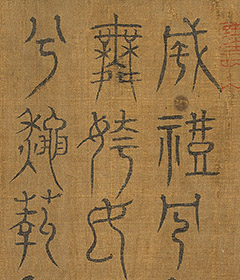 成禮兮
舞姱女
兮秋菊